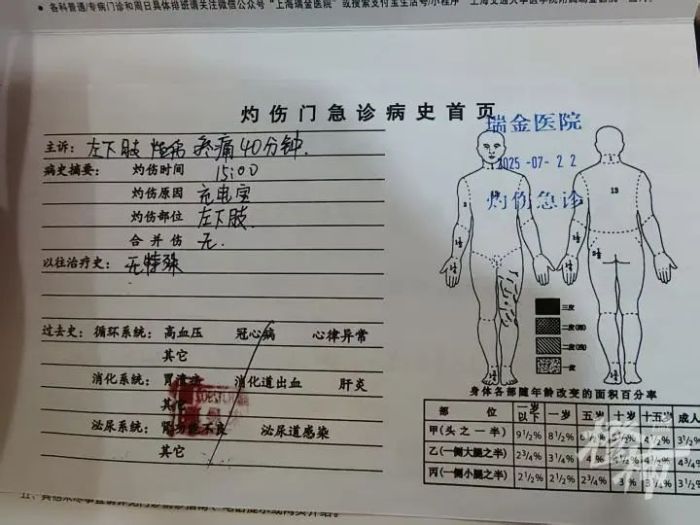 各科普通/专病门诊和周日具体排班请关注微信公众号“上海瑞金医院”或搜索支付宝生活号/小程序
灼伤门急诊病史首页
瑞金医院
2025-07-22
灼伤急诊
主诉: 左下肢 疼痛 40分钟.
病史摘要: 灼伤时间 15:00
灼伤原因 充电宝
灼伤部位 左下肢.
合并伤 无.
以往治疗史: 无特殊
过去史: 循环系统: 高血压 冠心病 心律异常
其它
消化系统: 胃溃疡 消化道出血 肝炎
其它
泌尿系统: 肾功能不良 泌尿道感染
其它
13
三度
一度
身体各部随年龄改变的面积百分率
部 位 一岁以下 一岁 五岁 十岁 十五岁 成人
甲(头之一半) 9½% 8½% 3½%
乙(一侧大腿之半) 2¾% 3¼% 4%
丙(一侧小腿之半) 2½% 2½% 2¾% 3% 3¼% 3½%